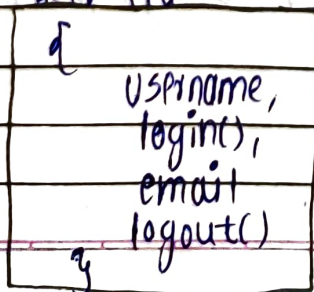 {
username,
login(),
email
logout()
}